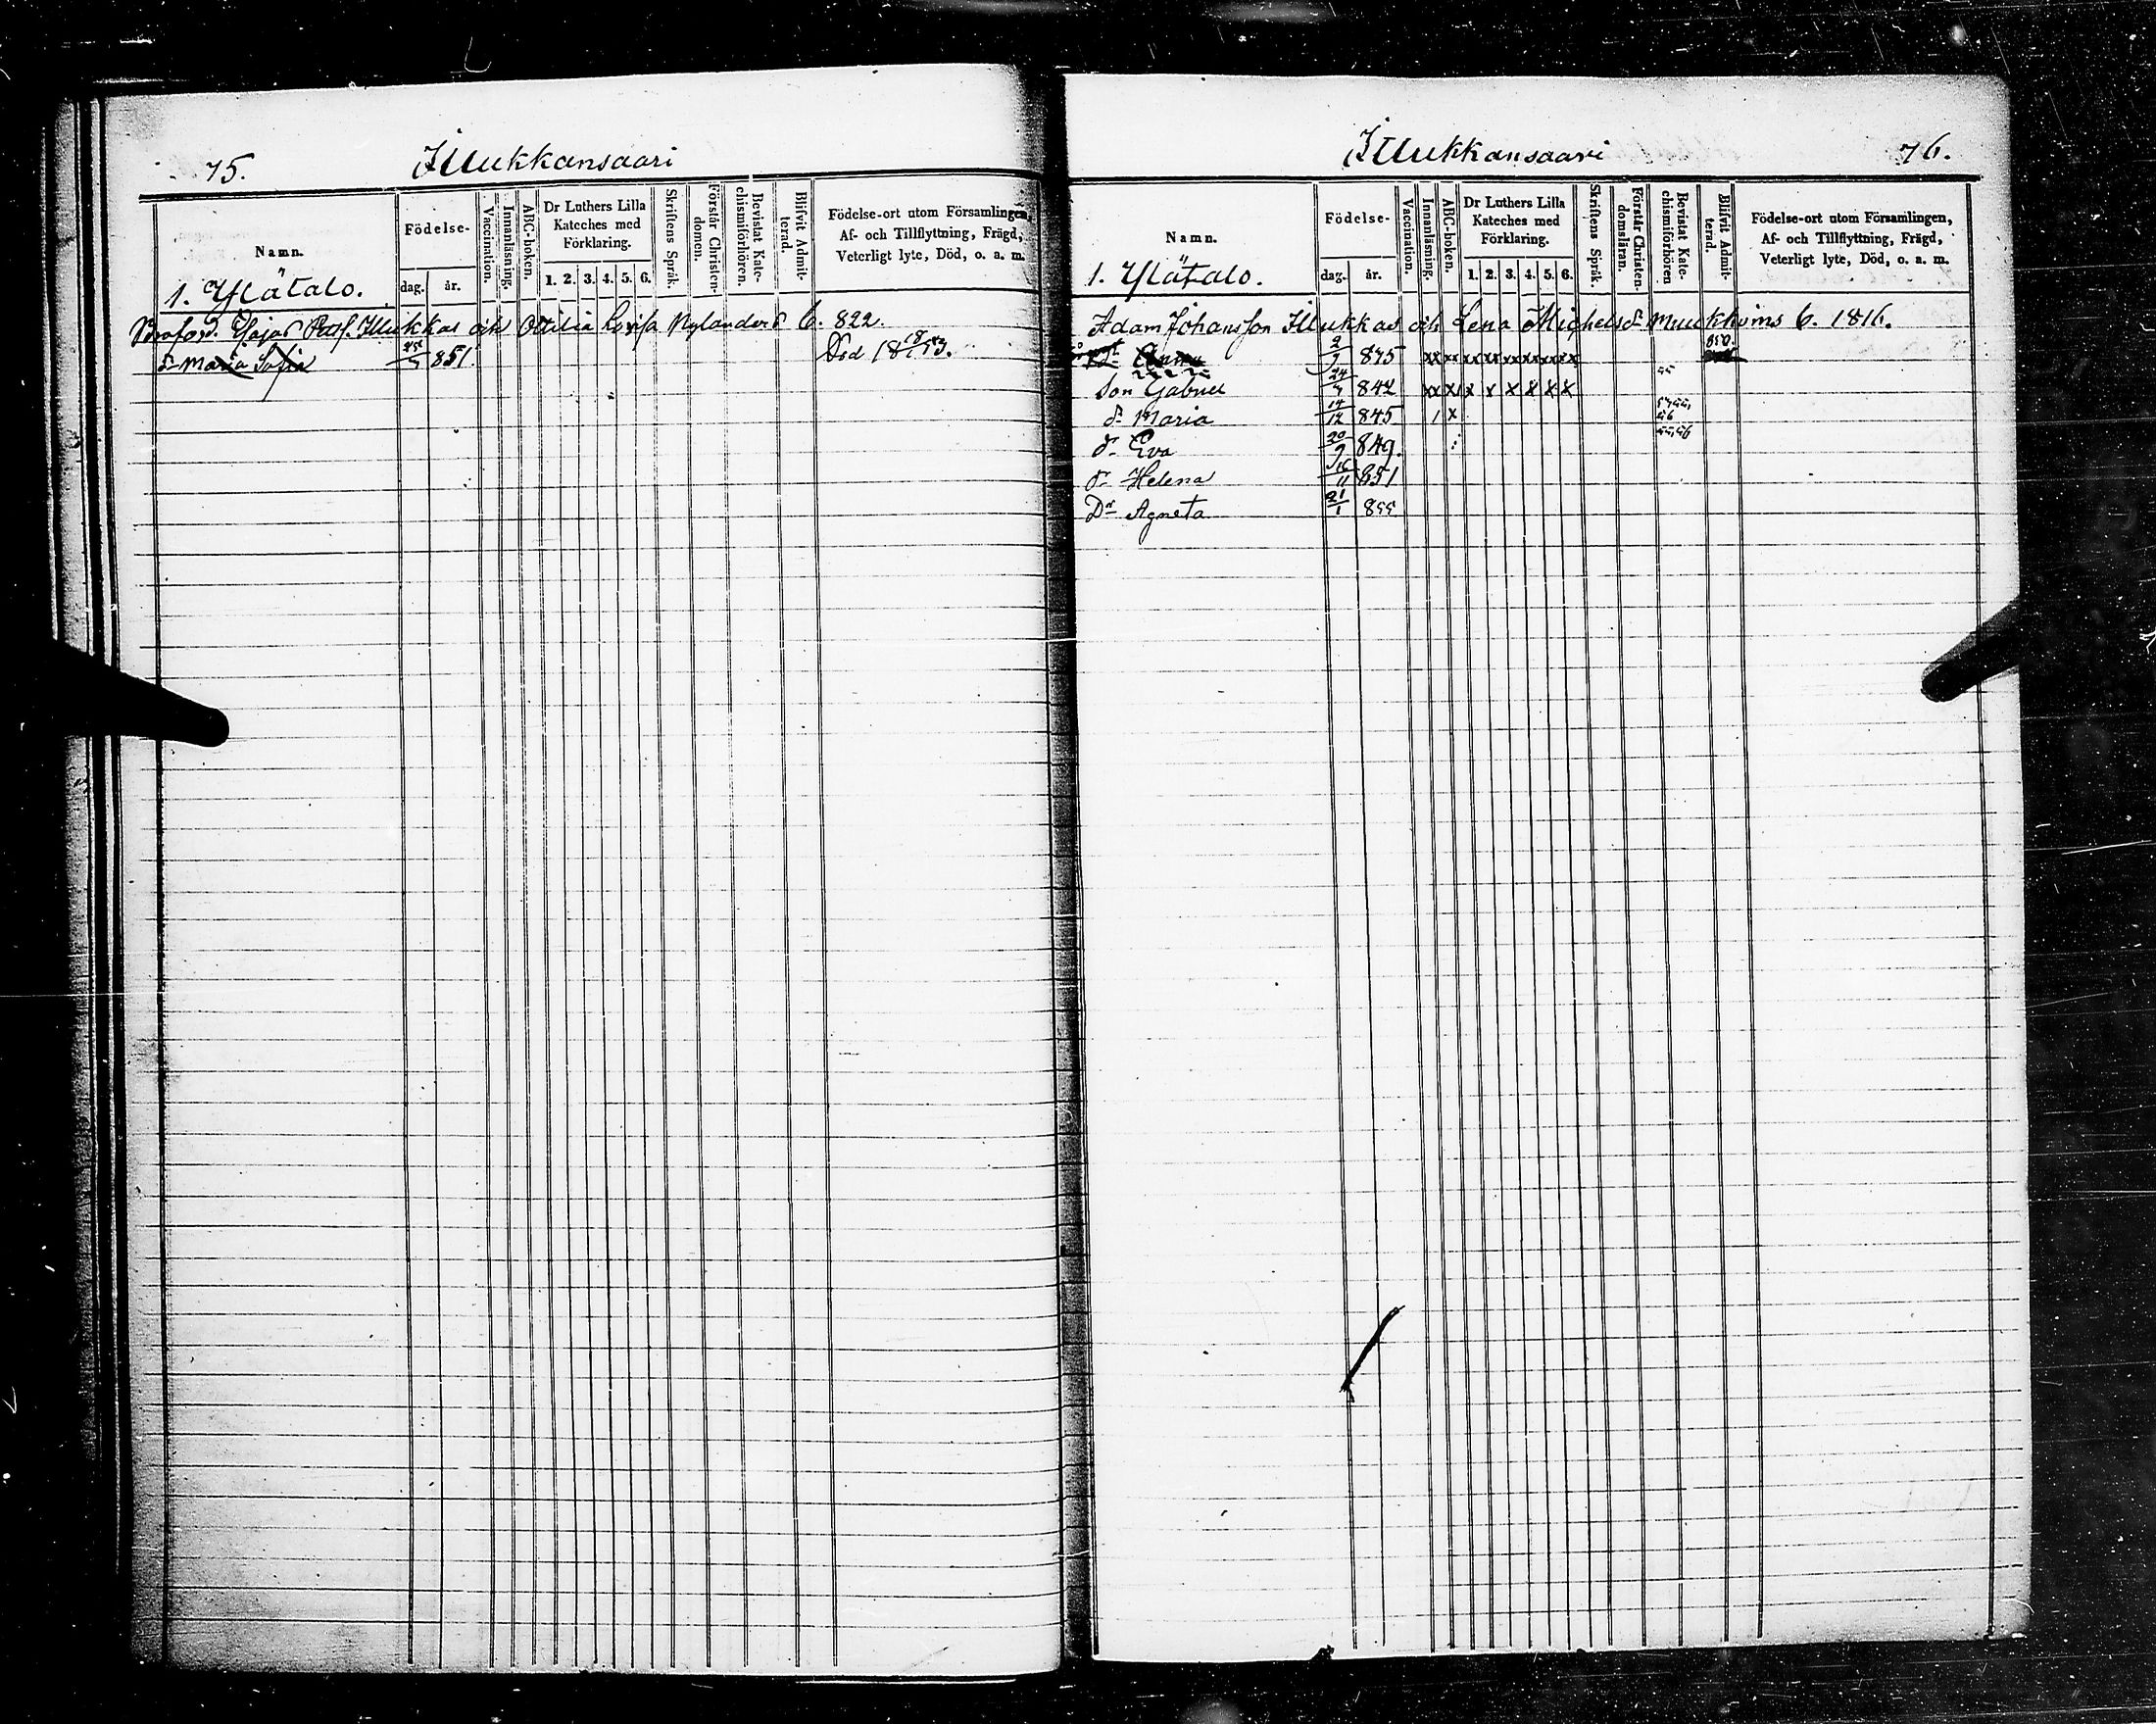 75.
Illukkansaari
Namn.
Födelse-
dag.
år.
Vaccination.
Innanläsning.
ABC-boken.
Dr Luthers Lilla
Kateches med
Förklaring.
1. 2. 3. 4. 5. 6.
Skriftens Språk.
Förstår Christen-
domen.
Bevistat Kate-
chismiförhören.
Blifvit Admit-
terad.
Födelse-ort utom Församlingen,
Af- och Tillflyttning, Frägd,
Veterligt lyte, Död, o. a. m.
1. Ylätalo.
Esajas Illukkas och Ottilia Lovisa Nylanders b. 822.
dr Maria Sofia 851. Död
76.
Illukkansaari
Namn.
Födelse-
dag.
år.
Vaccination.
Innanläsning.
ABC-boken.
Dr Luthers Lilla
Kateches med
Förklaring.
1. 2. 3. 4. 5. 6.
Skriftens Språk.
Förstår Christen-
domsläran.
Bevistat Kate-
chismiförhören
Blifvit Admit-
terad.
Födelse-ort utom Församlingen,
Af- och Tillflyttning, Frägd,
Veterligt lyte, Död, o. a. m.
1. Ylätalo.
Adam Johansson Illukkas och Lena Michelsdr b. 1816.
Anna 2/9 xx xx xx xx xx xx xx xx
Son Gabriel 24/7 842 xx x x x x x x x
dr Maria 14/12 845 1 x
dr Eva 20/9 849.
dr Helena 16/11 851
Dr Agneta 21/1 855